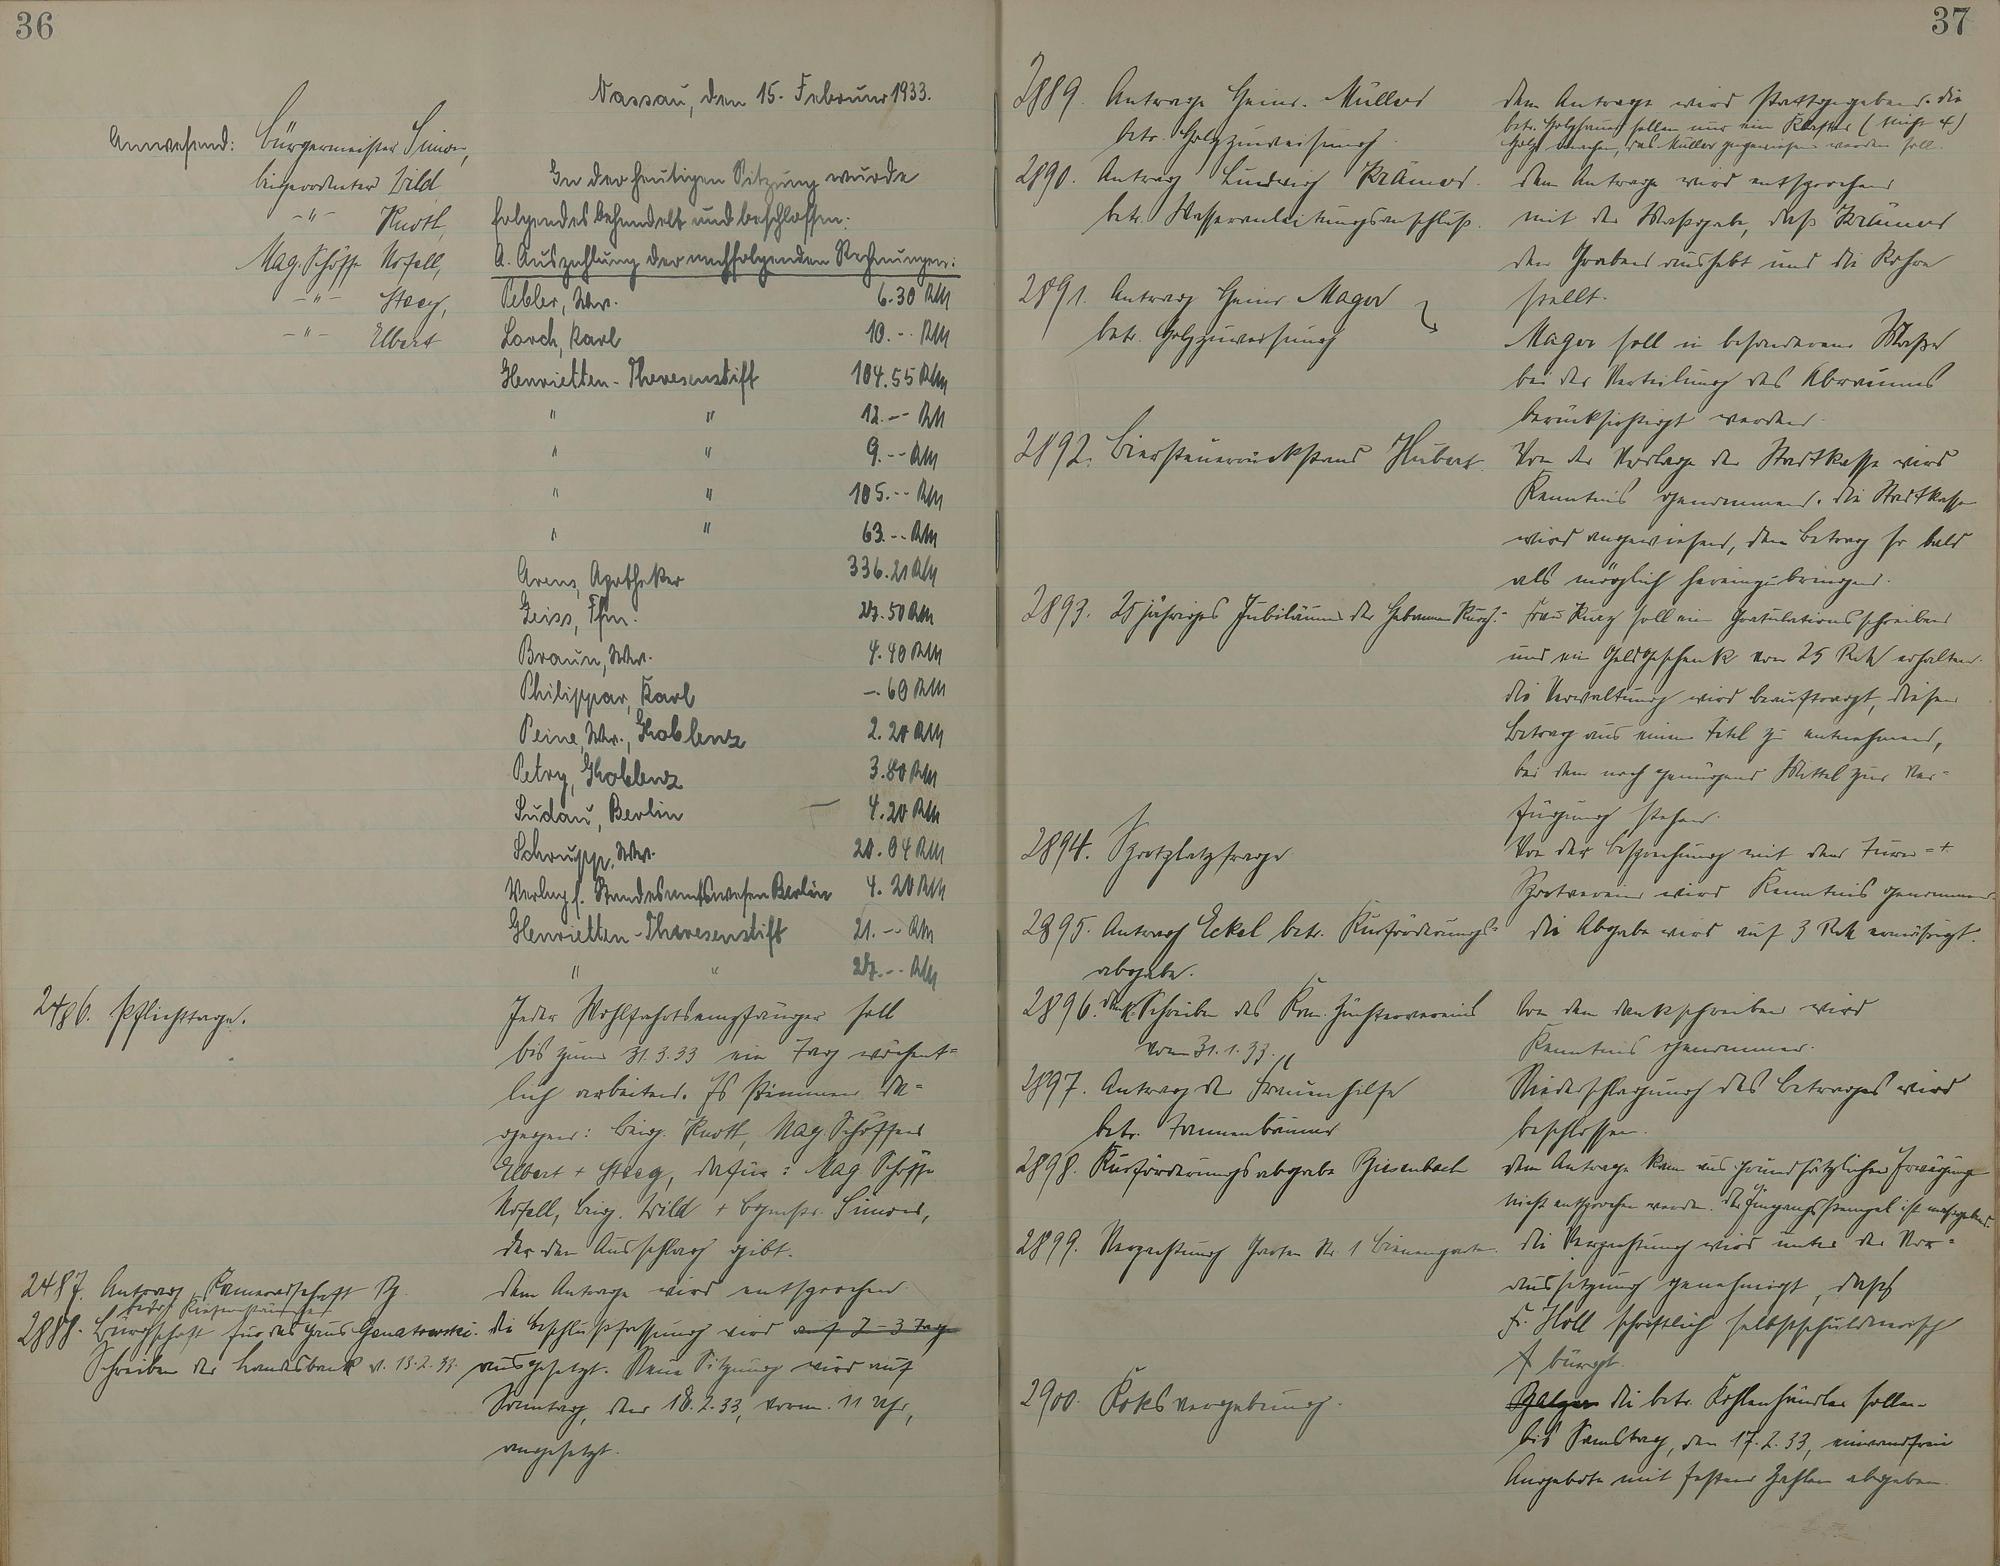 36
Nassau, den 15. Februar 1933.
Anwesend: Bürgermeister Simon,
Beigeordneter Wild
-"- Knoth,
Mag. Schöffe Nosfall,
-"- Steeg,
-"- Elbert
In der heutigen Sitzung wurde
folgendes behandelt und beschlossen:
A. Auszahlung der nachfolgenden Rechnungen:
Pebler, Ww. 6.30 RM
Lorch, Karl 10.-- RM
Henrietten-Theresenstift 104.55 RM
" " 12.-- RM
" " 9.-- RM
" " 105.-- RM
" " 63.-- RM
Arens, Apotheker 336.21 RM
Geiss, Phn. 27.50 RM
Braun, Ww. 4.40 RM
Philippar, Karl -.60 RM
Peine, Ww., Koblenz 2.20 RM
Petry, Koblenz 3.80 RM
Sudau, Berlin 4.20 RM
Schrupp, Ww. 20.04 RM
Verlag f. Standesamtswesen Berlin 4.20 RM
Henrietten-Theresenstift 21.-- RM
" " 27.-- RM
2486. Pflichttage.
Jeder Wohlfahrtsempfänger soll
bis zum 31.3.33 ein Tag wöchent-
lich arbeiten. Es stimmen da-
gegen: Beig. Knoth, Mag. Schöffen
Elbert + Steeg, dafür: Mag. Schöffe
Beig. Wild + Bgmstr. Simon,
der den Ausschlag gibt.
2487. Antrag Kameradschaft
dem Antrage wird entsprochen
2888. Bürgschaft für das Haus
Schreiben der Landesbank v. 13.2.33.
die Beschlußfassung wird auf 2-3 Tage
ausgesetzt. Neue Sitzung wird auf
Sonntag, den 18.2.33, vorm. 11 Uhr,
angesetzt.
37
2889. Antrag Heinr. Müller
betr. Holzzuweisung.
dem Antrage wird stattgegeben. die
betr. Holzhauer sollen nur ein Klafter (nicht 4)
Holz machen, das Müller zugewiesen werden soll.
2890. Antrag Ludwig Krämer.
betr. Wasserleitungsanschluß.
dem Antrage wird entsprochen
mit der Maßgabe, daß Krämer
den Graben aushebt und die Rohre
stellt.
2891. Antrag Heinr. Mager
betr. Holzzuweisung
Mager soll in besonderem Maße
bei der Verteilung des Abraumes
berücksichtigt werden.
2892. Biersteuerrückstand Hubert.
Von der Vorlage der Stadtkasse wird
Kenntnis genommen. die Stadtkasse
wird angewiesen, den Betrag so bald
als möglich hereinzubringen.
2893. 25 jähriges Jubiläum der Hebamme Kurz.-
Frau Kurz soll ein Gratulationsschreiben
und ein Geldgeschenk von 25 RM erhalten.
die Verwaltung wird beauftragt, diesen
Betrag aus einem Titel zu entnehmen,
bei dem noch genügend Mittel zur Ver-
fügung stehen.
2894. Sportplatzfrage
Von der Besprechung mit dem Turn- +
Sportverein wird Kenntnis genommen.
2895. Antrag Eckel betr. Kurförderungs-
abgabe.
die Abgabe wird auf 3 RM ermäßigt.
2896. Schreiben des Kan. Züchtervereins
vom 31.1.33.
Von dem Dankschreiben wird
Kenntnis genommen.
2897. Antrag der Frauenhilfe
betr. Tannenbäume
Niederschlagung des Betrages wird
beschlossen.
2898. Kurförderungsabgabe Giesenbach
dem Antrage kann aus grundsätzlichen Erwägungen
nicht entsprochen werden. der Eingangsstempel ist maßgebend.
2899. Verpachtung Garten Nr. 1 Bienengarten.
die Verpachtung wird unter der Vor-
aussetzung genehmigt, dass
Fr. Holl schriftlich selbstschuldnerisch
bürgt.
2900. Koksvergebung.
die betr. Kohlenhändler sollen
bis Samstag, den 17.2.33, einwandfreie
Angebote mit festen Zahlen abgeben.